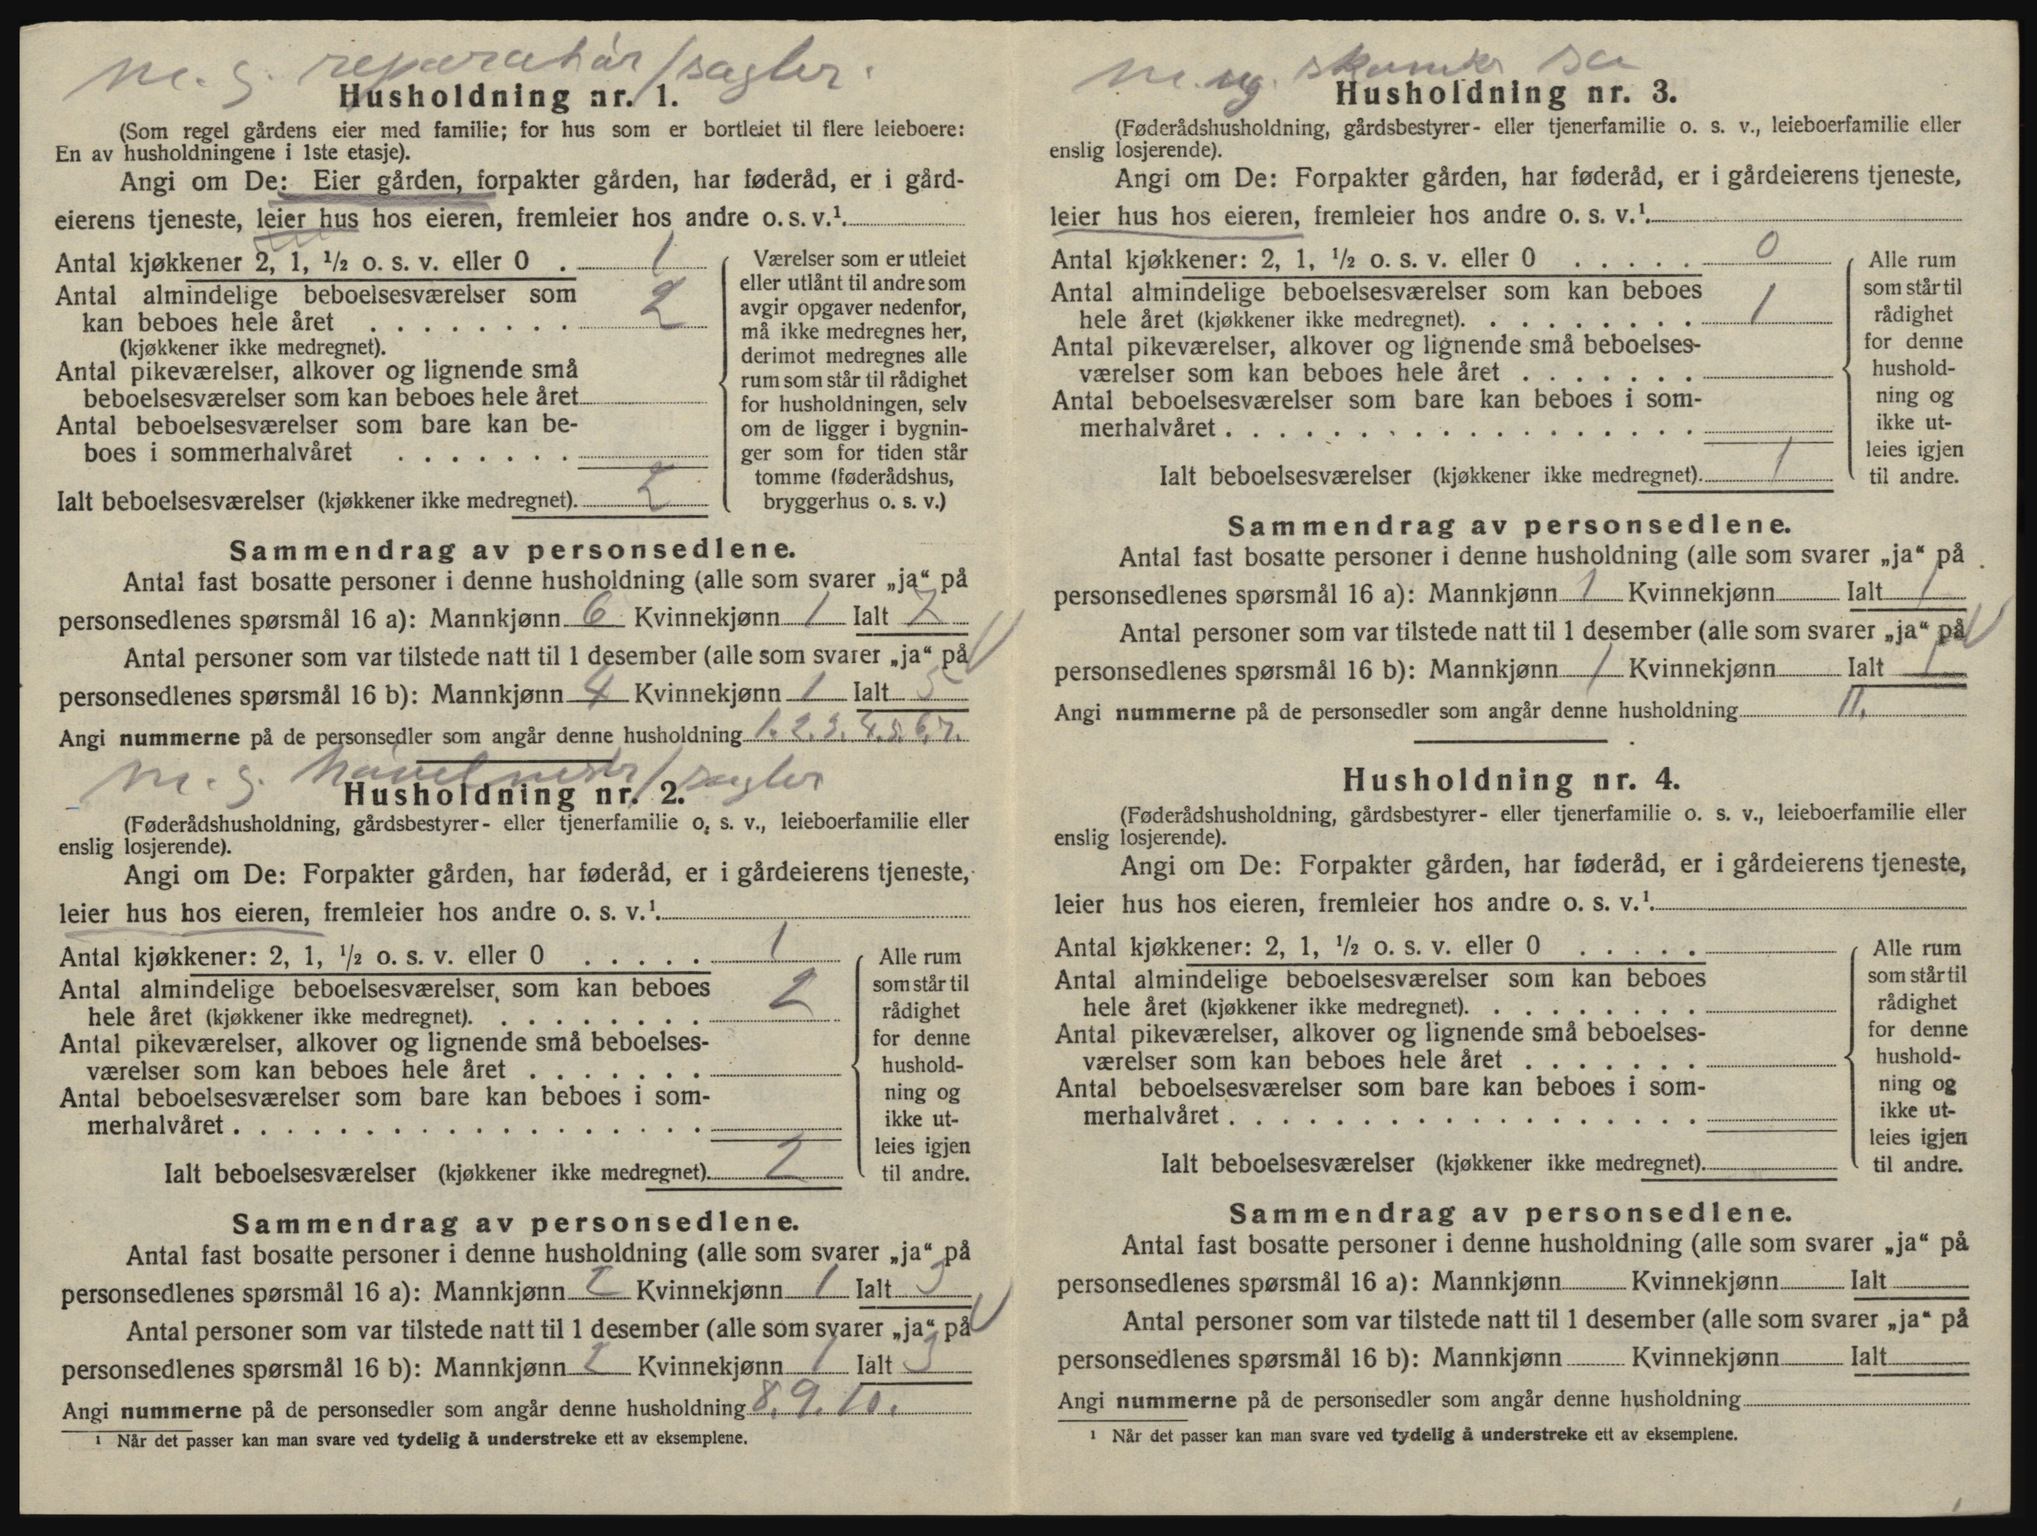 m. g. reparatør/sagbr.
Husholdning nr. 1.
(Som regel gårdens eier med familie; for hus som er bortleiet til flere leieboere:
En av husholdningene i 1ste etasje).
Angi om De: Eier gården, forpakter gården, har føderåd, er i gård-
eierens tjeneste, leier hus hos eieren, fremleier hos andre o. s. v.¹
Antal kjøkkener 2, 1, ½ o. s. v. eller 0 . 1
Antal almindelige beboelsesværelser som
kan beboes hele året . . . . . . . . 2
(kjøkkener ikke medregnet).
Antal pikeværelser, alkover og lignende små
beboelsesværelser som kan beboes hele året
Antal beboelsesværelser som bare kan be-
boes i sommerhalvåret . . . . . . .
Ialt beboelsesværelser (kjøkkener ikke medregnet). 2
Værelser som er utleiet
eller utlånt til andre som
avgir opgaver nedenfor,
må ikke medregnes her,
derimot medregnes alle
rum som står til rådighet
for husholdningen, selv
om de ligger i bygnin-
ger som for tiden står
tomme (føderådshus,
bryggerhus o. s. v.)
Sammendrag av personsedlene.
Antal fast bosatte personer i denne husholdning (alle som svarer „ja“ på
personsedlenes spørsmål 16 a): Mannkjønn 6 Kvinnekjønn 1 Ialt 7
Antal personer som var tilstede natt til 1 desember (alle som svarer „ja“ på
personsedlenes spørsmål 16 b): Mannkjønn 4 Kvinnekjønn 1 Ialt 5
Angi nummerne på de personsedler som angår denne husholdning 1. 2. 3. 4. 5. 6. 7.
m. g. /sagbr
Husholdning nr. 2.
(Føderådshusholdning, gårdsbestyrer- eller tjenerfamilie o. s. v., leieboerfamilie eller
enslig losjerende).
Angi om De: Forpakter gården, har føderåd, er i gårdeierens tjeneste,
leier hus hos eieren, fremleier hos andre o. s. v.¹
Antal kjøkkener: 2, 1, ½ o. s. v. eller 0 . . . . . 1
Antal almindelige beboelsesværelser som kan beboes
hele året (kjøkkener ikke medregnet). . . . . . . . . 2
Antal pikeværelser, alkover og lignende små beboelses-
værelser som kan beboes hele året . . . . . . .
Antal beboelsesværelser som bare kan beboes i som-
merhalvåret . . . . . . . . . . . . . . . . . .
Ialt beboelsesværelser (kjøkkener ikke medregnet). 2
Alle rum
som står til
rådighet
for denne
hushold-
ning og
ikke ut-
leies igjen
til andre.
Sammendrag av personsedlene.
Antal fast bosatte personer i denne husholdning (alle som svarer „ja“ på
personsedlenes spørsmål 16 a): Mannkjønn 2 Kvinnekjønn 1 Ialt 3
Antal personer som var tilstede natt til 1 desember (alle som svarer „ja“ på
personsedlenes spørsmål 16 b): Mannkjønn 2 Kvinnekjønn 1 Ialt 3
Angi nummerne på de personsedler som angår denne husholdning 8. 9. 10.
¹ Når det passer kan man svare ved tydelig å understreke ett av eksemplene.
m. ug.
Husholdning nr. 3.
(Føderådshusholdning, gårdsbestyrer- eller tjenerfamilie o. s. v., leieboerfamilie eller
enslig losjerende).
Angi om De: Forpakter gården, har føderåd, er i gårdeierens tjeneste,
leier hus hos eieren, fremleier hos andre o. s. v.¹
Antal kjøkkener: 2, 1, ½ o. s. v. eller 0 . . . . . 0
Antal almindelige beboelsesværelser som kan beboes
hele året (kjøkkener ikke medregnet). . . . . . . . . 1
Antal pikeværelser, alkover og lignende små beboelses-
værelser som kan beboes hele året . . . . . . .
Antal beboelsesværelser som bare kan beboes i som-
merhalvåret . . . . . . . . . . . . . . . . . .
Ialt beboelsesværelser (kjøkkener ikke medregnet). 1
Alle rum
som står til
rådighet
for denne
hushold-
ning og
ikke ut-
leies igjen
til andre.
Sammendrag av personsedlene.
Antal fast bosatte personer i denne husholdning (alle som svarer „ja“ på
personsedlenes spørsmål 16 a): Mannkjønn 1 Kvinnekjønn Ialt 1
Antal personer som var tilstede natt til 1 desember (alle som svarer „ja“ på
personsedlenes spørsmål 16 b): Mannkjønn 1 Kvinnekjønn Ialt 1
Angi nummerne på de personsedler som angår denne husholdning 11.
Husholdning nr. 4.
(Føderådshusholdning, gårdsbestyrer- eller tjenerfamilie o. s. v., leieboerfamilie eller
enslig losjerende).
Angi om De: Forpakter gården, har føderåd, er i gårdeierens tjeneste,
leier hus hos eieren, fremleier hos andre o. s. v.¹
Antal kjøkkener: 2, 1, ½ o. s. v. eller 0 . . . . .
Antal almindelige beboelsesværelser som kan beboes
hele året (kjøkkener ikke medregnet). . . . . . . . .
Antal pikeværelser, alkover og lignende små beboelses-
værelser som kan beboes hele året . . . . . . .
Antal beboelsesværelser som bare kan beboes i som-
merhalvåret . . . . . . . . . . . . . . . . . .
Ialt beboelsesværelser (kjøkkener ikke medregnet).
Alle rum
som står til
rådighet
for denne
hushold-
ning og
ikke ut-
leies igjen
til andre.
Sammendrag av personsedlene.
Antal fast bosatte personer i denne husholdning (alle som svarer „ja“ på
personsedlenes spørsmål 16 a): Mannkjønn Kvinnekjønn Ialt
Antal personer som var tilstede natt til 1 desember (alle som svarer „ja“ på
personsedlenes spørsmål 16 b): Mannkjønn Kvinnekjønn Ialt
Angi nummerne på de personsedler som angår denne husholdning
¹ Når det passer kan man svare ved tydelig å understreke ett av eksemplene.